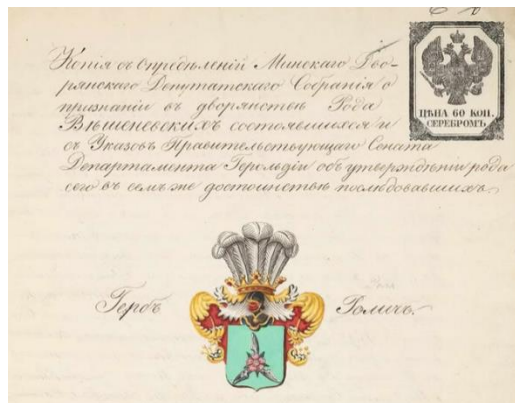 Копія съ Опредѣленій Минскаго Дво-
рянскаго Депутатскаго Собранія о
признаніи въ дворянствѣ Рода
Вѣшеневскихъ состоявшихся и
съ Указовъ Правительствующаго Сената
Департамента Герольдіи объ утвержденіи рода
сего въ семъ же достоинствѣ послѣдовавшихъ.
ЦѢНА 60 КОП.
СЕРЕБРОМЪ
Гербъ